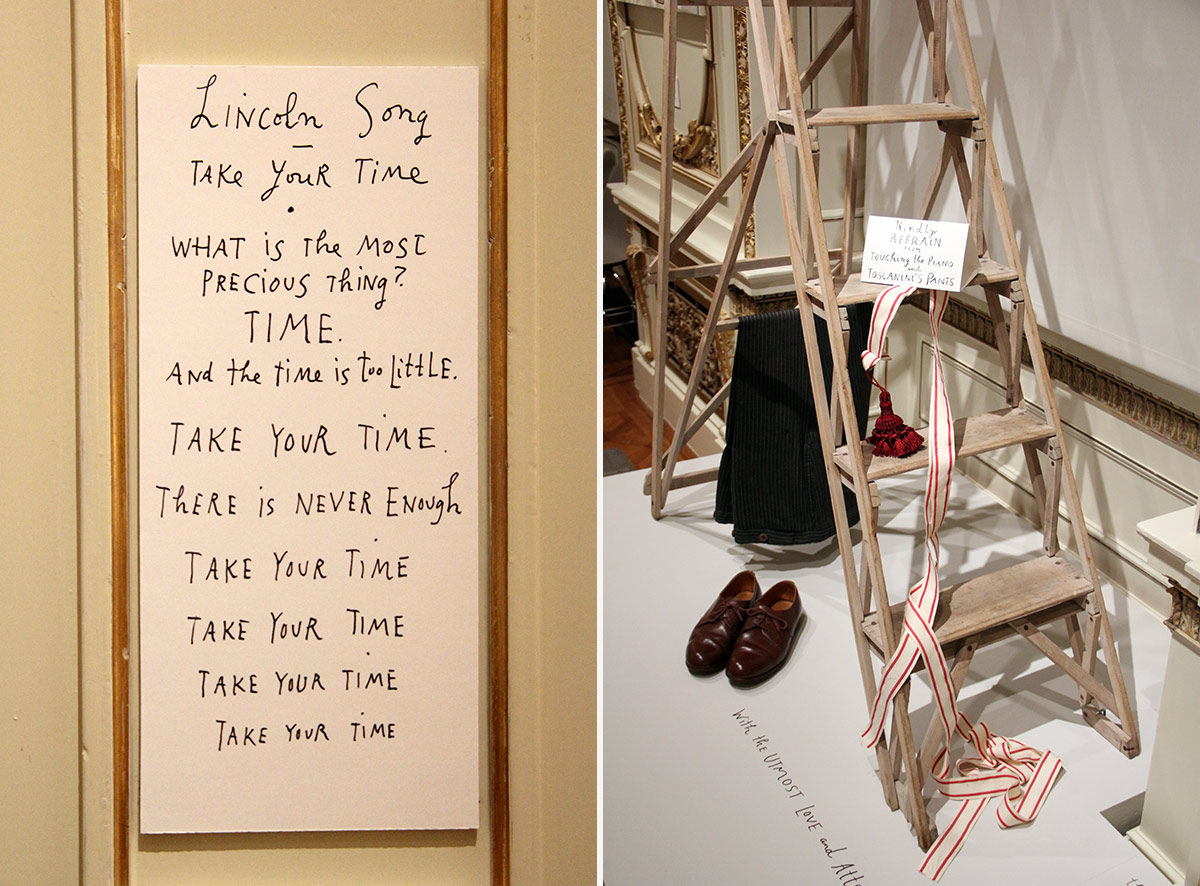 Lincoln Song
TAKE YOUR TIME
WHAT is the MOST
PRECIOUS THING?
TIME.
AND the TIME is too LittLE.
TAKE YOUR TIME.
THERE is NEVER ENOUGH
TAKE YOUR TIME
TAKE YOUR TIME
TAKE YOUR TIME
TAKE YOUR TIME
Kindly
REFRAIN
FROM
TOUCHING the PIANO
and
TOSCANINI'S PANTS
With the UTMOST LOVE and Atte